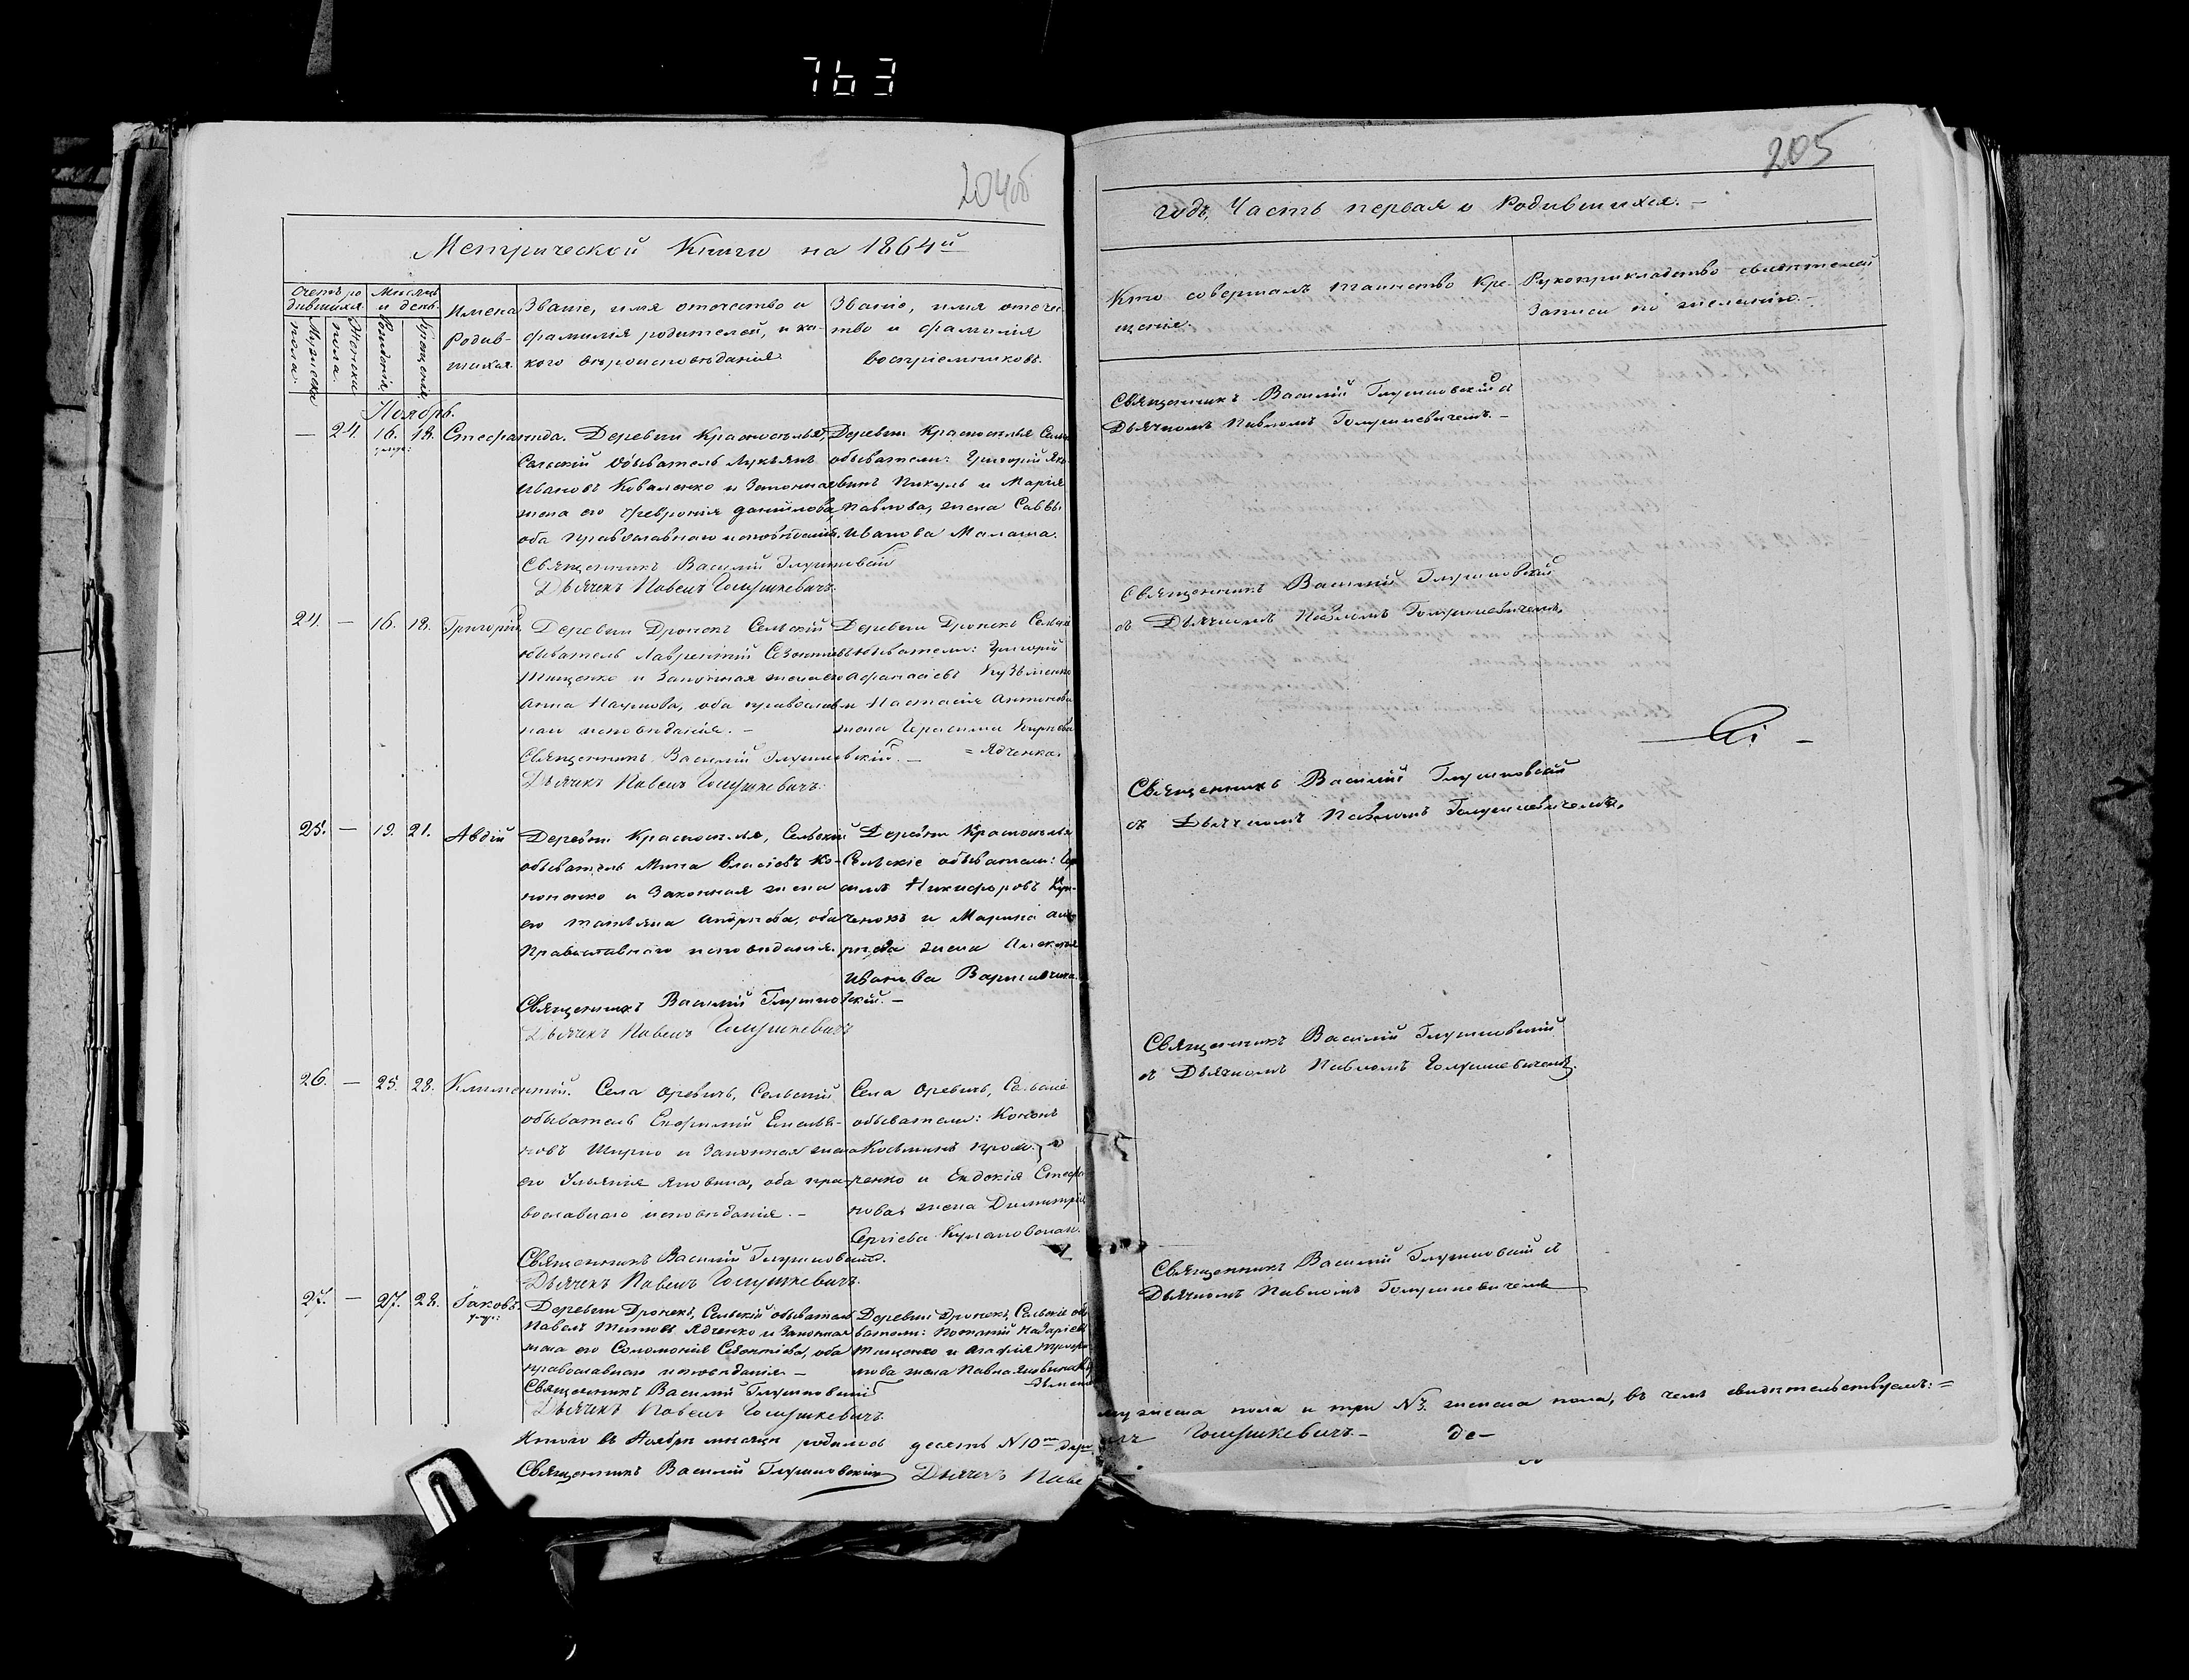 763
204об
Метрической Книги на 1864й
Счетъ ро
дившихся
Мужеска
пола.
Женска
пола.
Месяцъ
и день.
Рожденія
Крещенія
Имена
Родив-
шихся.
Званіе, имя отчество и
фамилія родителей, и ка-
кого вѣроисповѣданія.
Званіе, имя отчес-
тво и фамилія
воспріемниковъ.
Ноябрь.
— 24. 16. 18. Стефанида.
Деревни Красноселья,
Сельскій Обыватель Лукьянъ
Ивановъ Коваленко и Законная
жена его Февронія Данилова,
оба православнаго исповѣданія.
Деревни Красноселья Сель
обыватели: Григорій Яко
Пикуль и Марія
Павлова, жена Саввы
Иванова Малаша.
Священникъ Василій Глушковскій
Дьячекъ Павелъ Голушкевичъ.
24. — 16. 18. Григорій
Деревни Дронекъ Сельскій
обыватель Лаврентій
Тищенко и Законная жена его
Анна Наумова, оба православ
наго исповѣданія. —
Деревни Дронекъ Сельскі
обыватели: Григорій
Афанасіевъ Кузьменко
и Настасія Антонова
жена Герасима
= Ядченка.
Священникъ Василій Глушковскій. —
Дьячекъ Павелъ Голушкевичъ.
25. — 19. 21. Авдій
Деревни Красноселья, Сельскій
обыватель Мина Власіевъ Ко-
ноненко и Законная жена
его Татьяна Андреева, оба
Православнаго исповѣданія.
Деревни Красноселья
Сельскіе обыватели:
Никифоровъ
и Марина Анд
реева жена Алексѣя
Иванова
Священникъ Василій Глушковскій. —
Дьячекъ Павелъ Голушкевичъ
26. — 25. 28. Климентій.
Села Оревичъ, Сельскій
обыватель Евфимій Емелья-
новъ Ширко и Законная жена
его Ульянія Яковлева, оба пра-
вославнаго исповѣданія. —
Села Оревичъ, Сельскіе
обыватели: Кононъ
Козьминъ
ренко и Евдокія Стефа
нова жена Димитрія
Сергіева
Священникъ Василій Глушковскій.
Дьячекъ Павелъ Голушкевичъ.
27. — 27. 28. Іаковъ.
Деревни Дронекъ, Сельскій обыватель
Павелъ Титовъ Ядченко и Законная
жена его Соломонія оба
православнаго исповѣданія —
Деревни Дронекъ, Сельскіе обы
ватели:
Тищенко и Агафія
жена Павла
Священникъ Василій Глушковскій
Дьячекъ Павелъ Голушкевичъ.
Итого въ Ноябрѣ мѣсяцѣ родилось десять №10
Священникъ Василій Глушковскій Дьячекъ Паве
205
годъ, Часть первая о Родившихся. —
Кто совершалъ таинство Кре-
щенія.
Рукоприкладство свидѣтелей
Записи по желанію. —
Священникъ Василій Глушковскій съ
Дьячкомъ Павломъ Голушкевичемъ. —
Священникъ Василій Глушковскій
съ Дьячкомъ Павломъ Голушкевичемъ.
Священникъ Василій Глушковскій
съ Дьячкомъ Павломъ Голушкевичемъ.
Священникъ Василій Глушковскій
съ Дьячкомъ Павломъ Голушкевичемъ.
Священникъ Василій Глушковскій съ
Дьячкомъ Павломъ Голушкевичемъ
мужеска пола и три №3. женска пола, въ чемъ свидѣтельствуемъ: =
Голушкевичъ. —